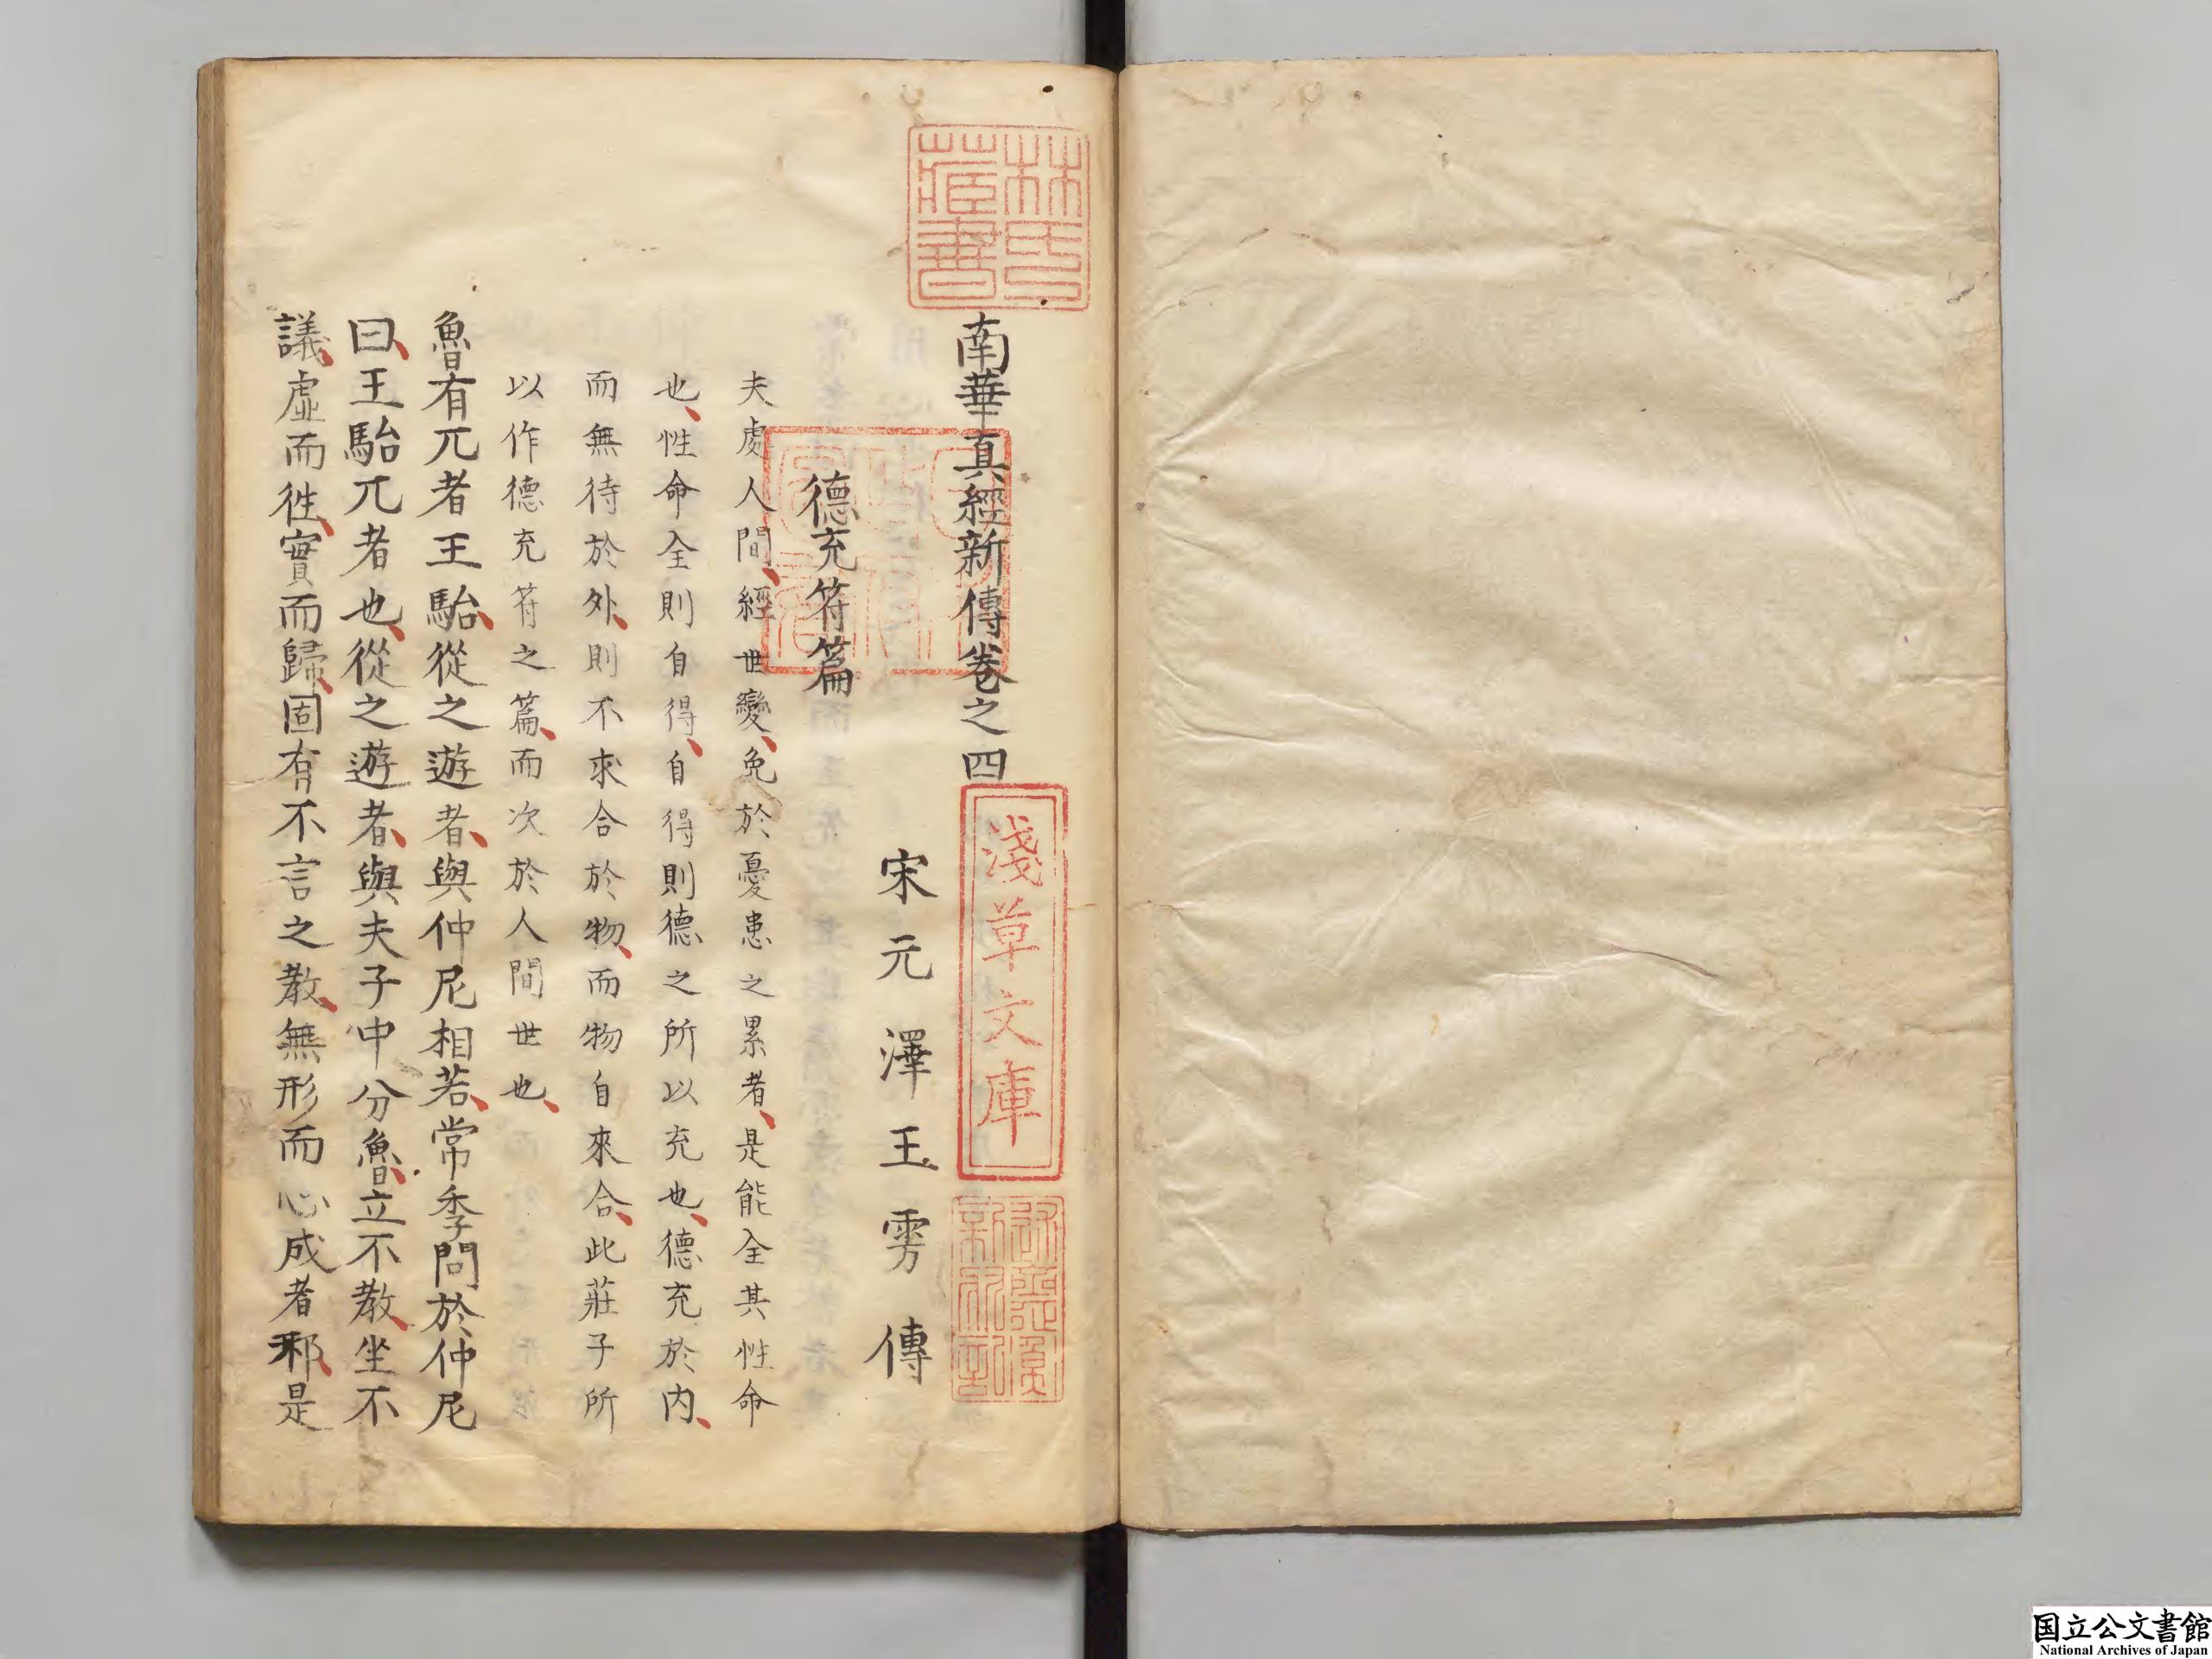 林氏
蔵書
南華真經新傳卷之四
淺草文庫
宋元澤王雱傳
德充符篇
夫處人間經世變免於憂患之累者是能全其性命
也性命全則自得自得則德之所以充也德充於內
而無待於外則不求合於物而物自來合此莊子所
以作德充符之篇而次於人間世也
魯有兀者王駘從之遊者與仲尼相若常季問於仲尼
曰王駘兀者也從之遊者與夫子中分魯立不教坐不
議虛而徃實而歸固有不言之教無形而心成者邪是
国立公文書館
National Archives of Japan